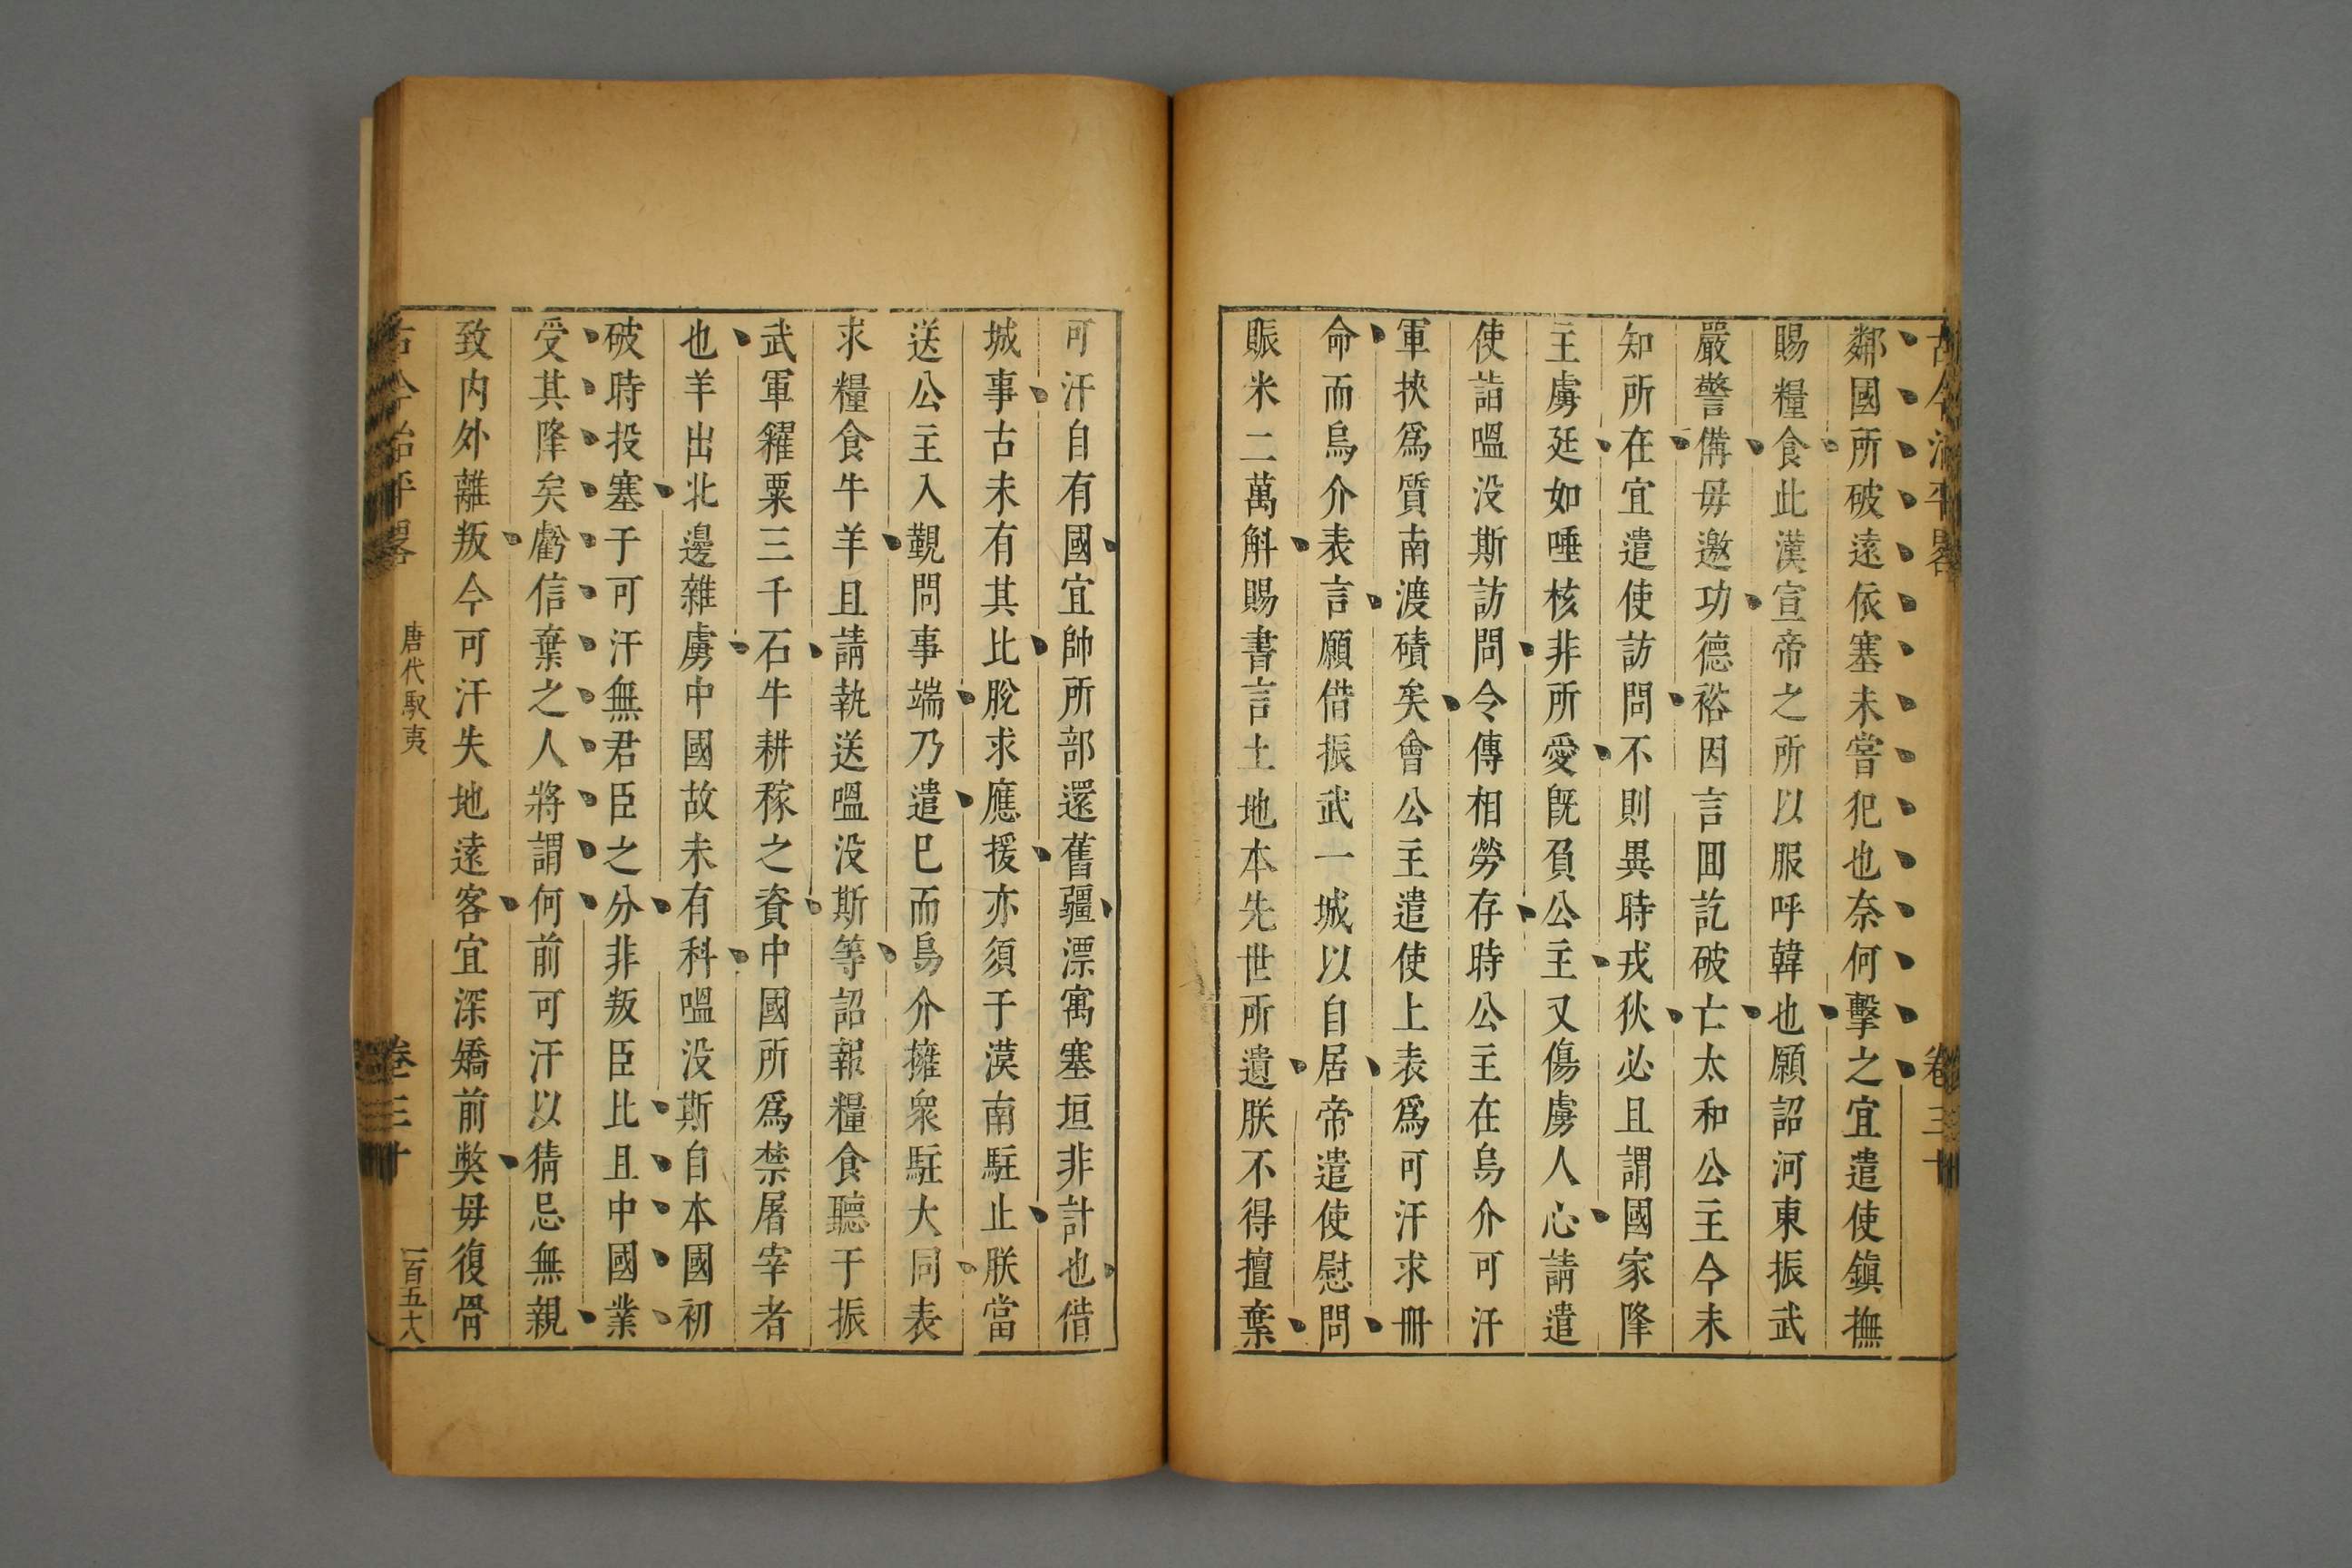 古今治平畧 卷三十
鄰國所破遠依塞未嘗犯也奈何擊之宜遣使鎮撫
賜糧食此漢宣帝之所以服呼韓也願詔河東振武
嚴警備毋邀功德裕因言囬訖破亡太和公主今未
知所在宜遣使訪問不則異時戎狄必且謂國家降
主虜廷如唾核非所愛既負公主又傷虜人心請遣
使詣嗢没斯訪問令傳相勞存時公主在烏介可汗
軍挾爲質南渡磧矣會公主遣使上表爲可汗求冊
命而烏介表言願借振武一城以自居帝遣使慰問
賑米二萬斛賜書言土地本先世所遺朕不得擅棄
可汗自有國宜帥所部還舊疆漂寓塞垣非計也借
城事古未有其比脫求應援亦須于漠南駐止朕當
送公主入覲問事端乃遣巳而烏介擁衆駐大同表
求糧食牛羊且請執送嗢没斯等詔報糧食聽于振
武軍糴粟三千石牛耕稼之資中國所爲禁屠宰者
也羊出北邊雜虜中國故未有科嗢没斯自本國初
破時投塞于可汗無君臣之分非叛臣比且中國業
受其降矣虧信棄之人將謂何前可汗以猜忌無親
致内外離叛今可汗失地遠客宜深矯前獘毋復骨
古今治平畧 唐代馭夷 卷三十 一百五十八